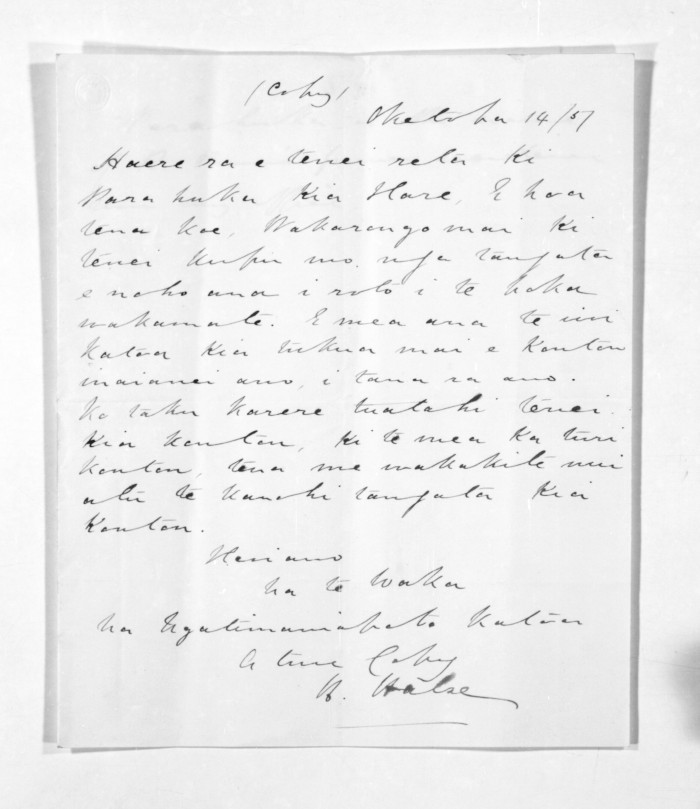 (Copy)
Oketopa 14/57
Haere ra e tenei reta ki
Parahuka kia Hare, E hoa
tena koe, Wakarongo mai ki
tenei kupu mo nga tangata
e noho ana i roto i te haka
wakamate. E mea ana te iwi
katoa kia tukua mai e koutou
inaianei ano, i tana ra ano.
Ko taku karere tuatahi tenei
kia koutou, ki te mea ka turi
koutou, tena me wakakite nui
atu te kanohi tangata kia
koutou.
Heriano
na te Waka
na Ngatimaniapoto katoa
A true Copy
H. Halse